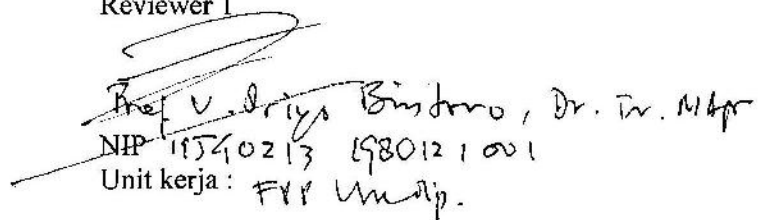 Reviewer 1
Prof V. Priyo Bintoro, Dr. Ir. MApr
NIP 19540213 198012 1 001
Unit kerja : FPP Undip.